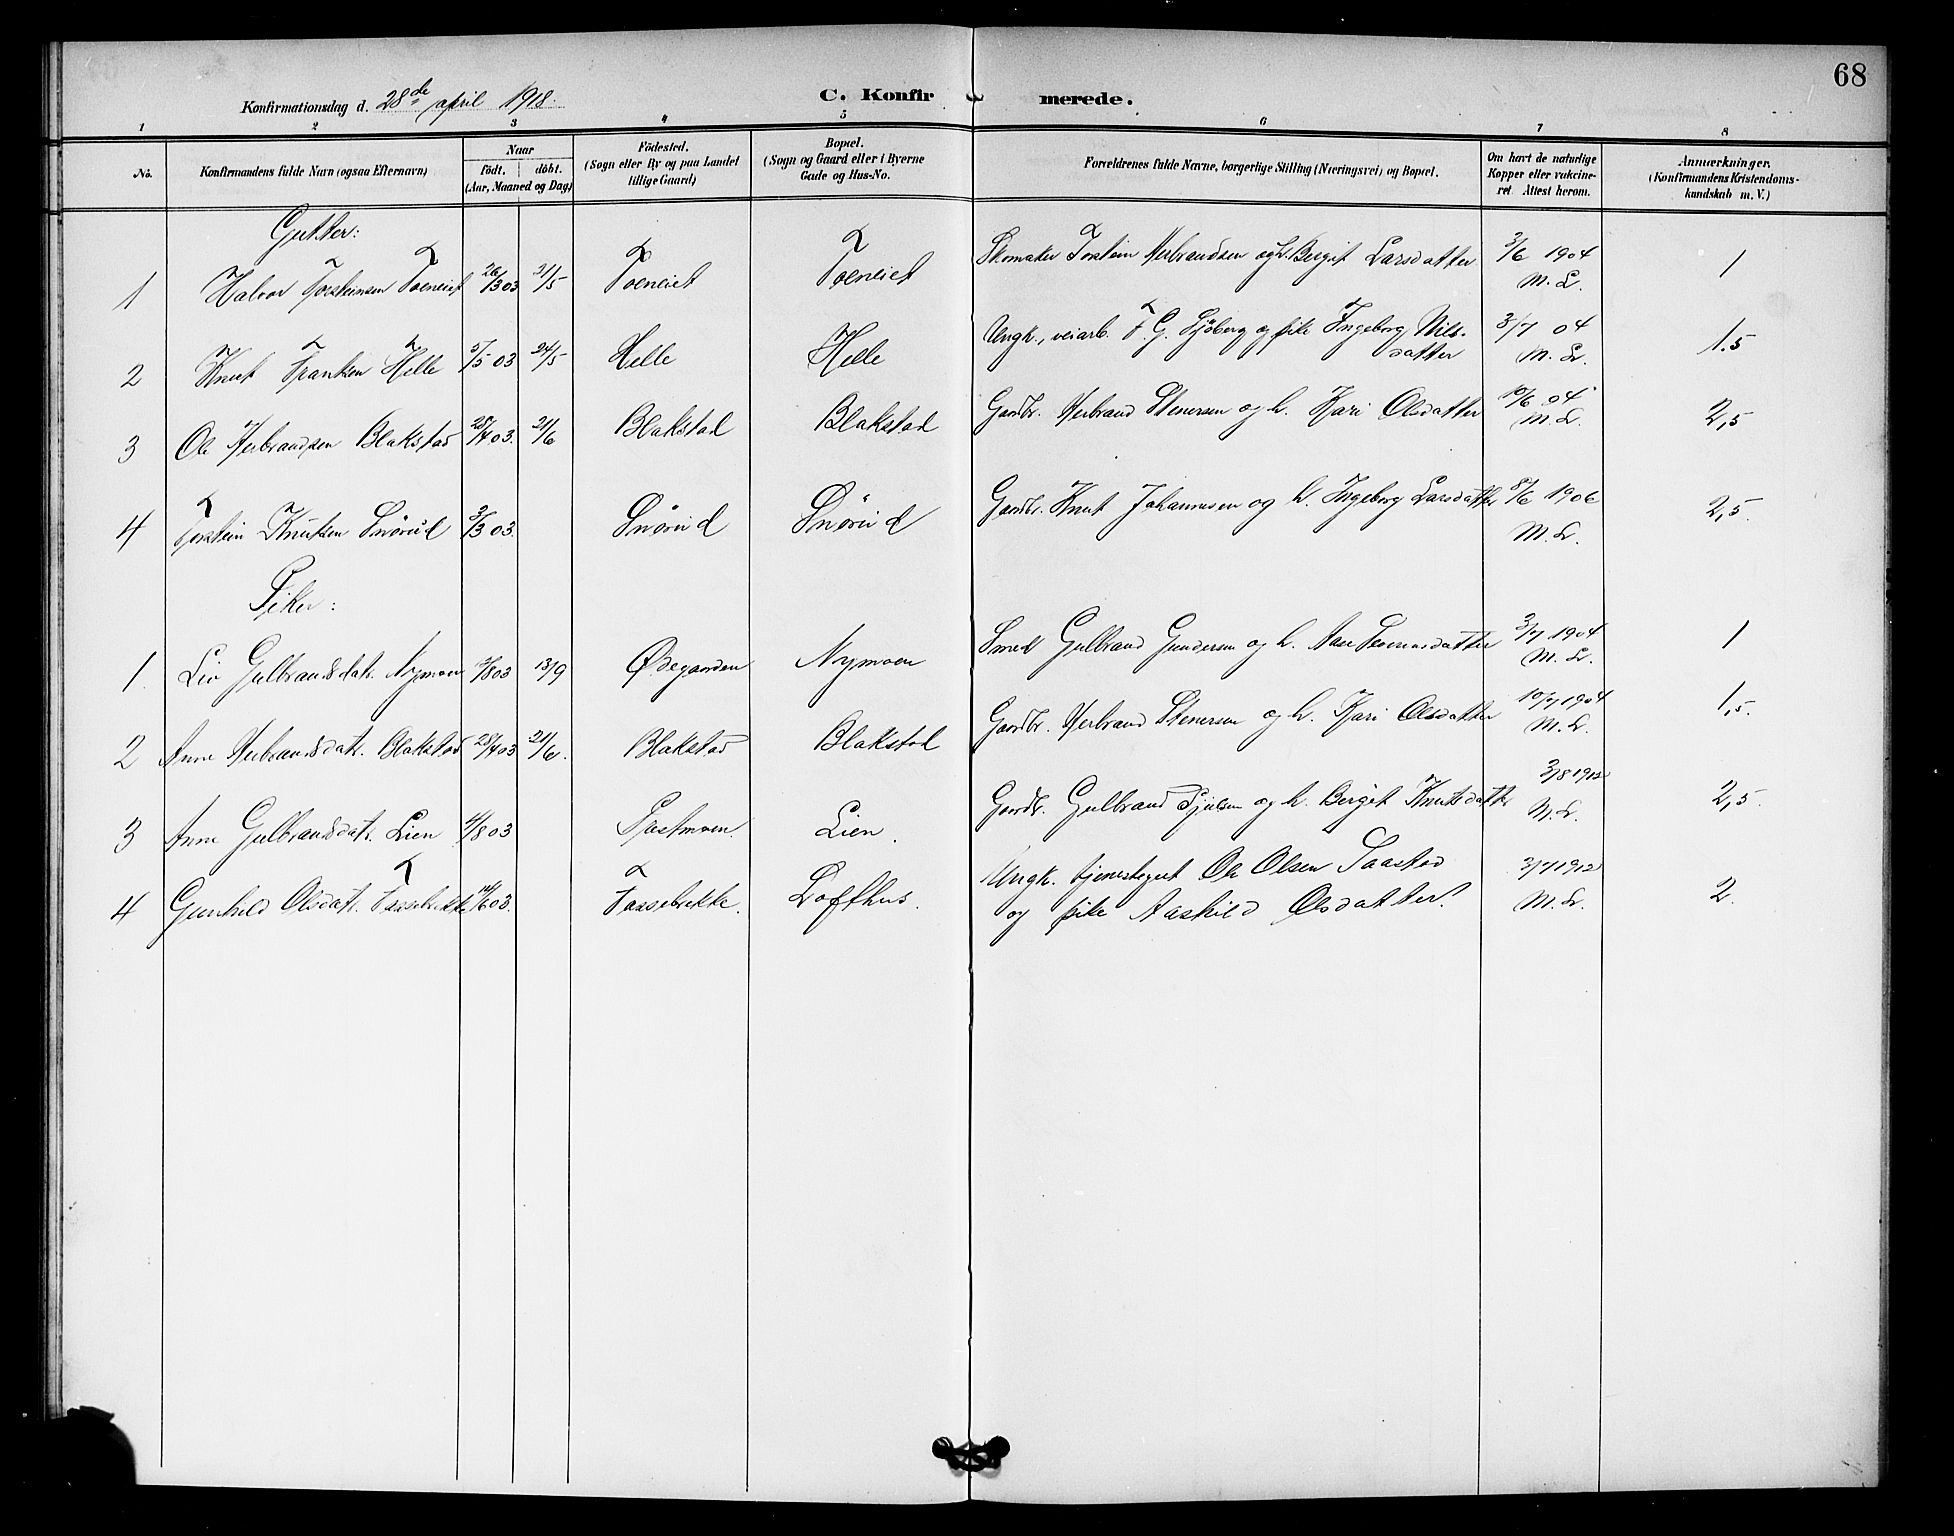 68
Konfirmationsdag d. 28de april 1918.
C. Konfirmerede.
1 2 3 4 5 6 7 8
No. Konfirmandens fulde Navn (ogsaa Efternavn)
Naar
födt. döbt.
(Aar, Maaned og Dag)
Födested.
(Sogn eller By og paa Landet
tillige Gaard)
Bopæl.
(Sogn og Gaard eller i Byerne
Gade og Hus-No.
Forældrenes fulde Navne, borgerlige Stilling (Næringsvei) og Bopæl.
Om havt de naturlige
Kopper eller vakcine-
ret. Attest herom.
Anmærkninger.
(Konfirmandens Kristendoms-
kundskab m. V.)
Gutter:
1 Halvor Torsteinsen Toeneiet 26/3 03 21/5 Toeneiet Toeneiet Skomaker Torstein Herbrandsen og h. Bergit Larsdatter 3/6 1904 M. L. 1
2 Knut Frantsen Helle 5/5 03 24/5 Helle Helle Ungk., veiarb. F. G. Sjöberg og pike Ingeborg Nils-
datter 3/7 04 M. L. 1.5
3 Ole Herbrandsen Blakstad 28/4 03. 21/6 Blakstad Blakstad Gaardbr. Herbrand Stenersen og h. Kari Olsdatter 10/6 04 M. L. 2,5
4 Torstein Knutsen Snörud 3/3 03. Snörud Snörud Gaardbr. Knut Johannesen og h. Ingeborg Larsdatter 8/6 1906 M. L. 2,5.
Piker:
1. Liv Gulbrandsdatr. Nymoen /8 03 13/9 Ødegaarden Nymoen Smed Gulbrand Gundersen og h. Aase 3/7 1904 M. L. 1
2 Anne Herbrandsdatr. Blakstad 28/4 03 21/6. Blakstad Blakstad Gaardbr. Herbrand Stenersen og h. Kari Olsdatter 10/7 1904 M. L. 1,5.
3 Anne Gulbrandsdatr. Lien /8 03 Lien. Gaardbr. Gulbrand og h. Bergit Knutsdatter 3/8 M. L. 2,5.
4 Gunhild Olsdatr. Fossebrekke /6 03. Fossebrekke. Lofthus. Ungk. tjenestegut Ole Olsen Taasted
og pike Aashild Olsdatter. 3/7 1912 M. L. 2.